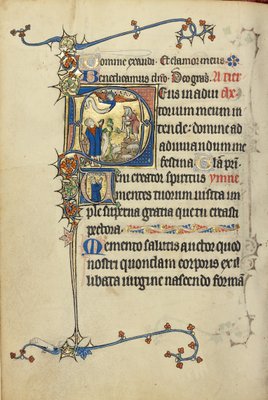 Domine exaudi. Et clamor meus
Benedicamus dño. Deo gras. A tierc
Deus in adiu
torium meum in
tende: domine ad
adiuvandum me
festina. Gla pri.
Veni creator spiritus ymne
mentes tuorum visita im
ple superna gratia que tu creasti
pectora.
Memento salutis auctor quod
nostri quondam corporis ex il
libata virgine nascendo formã